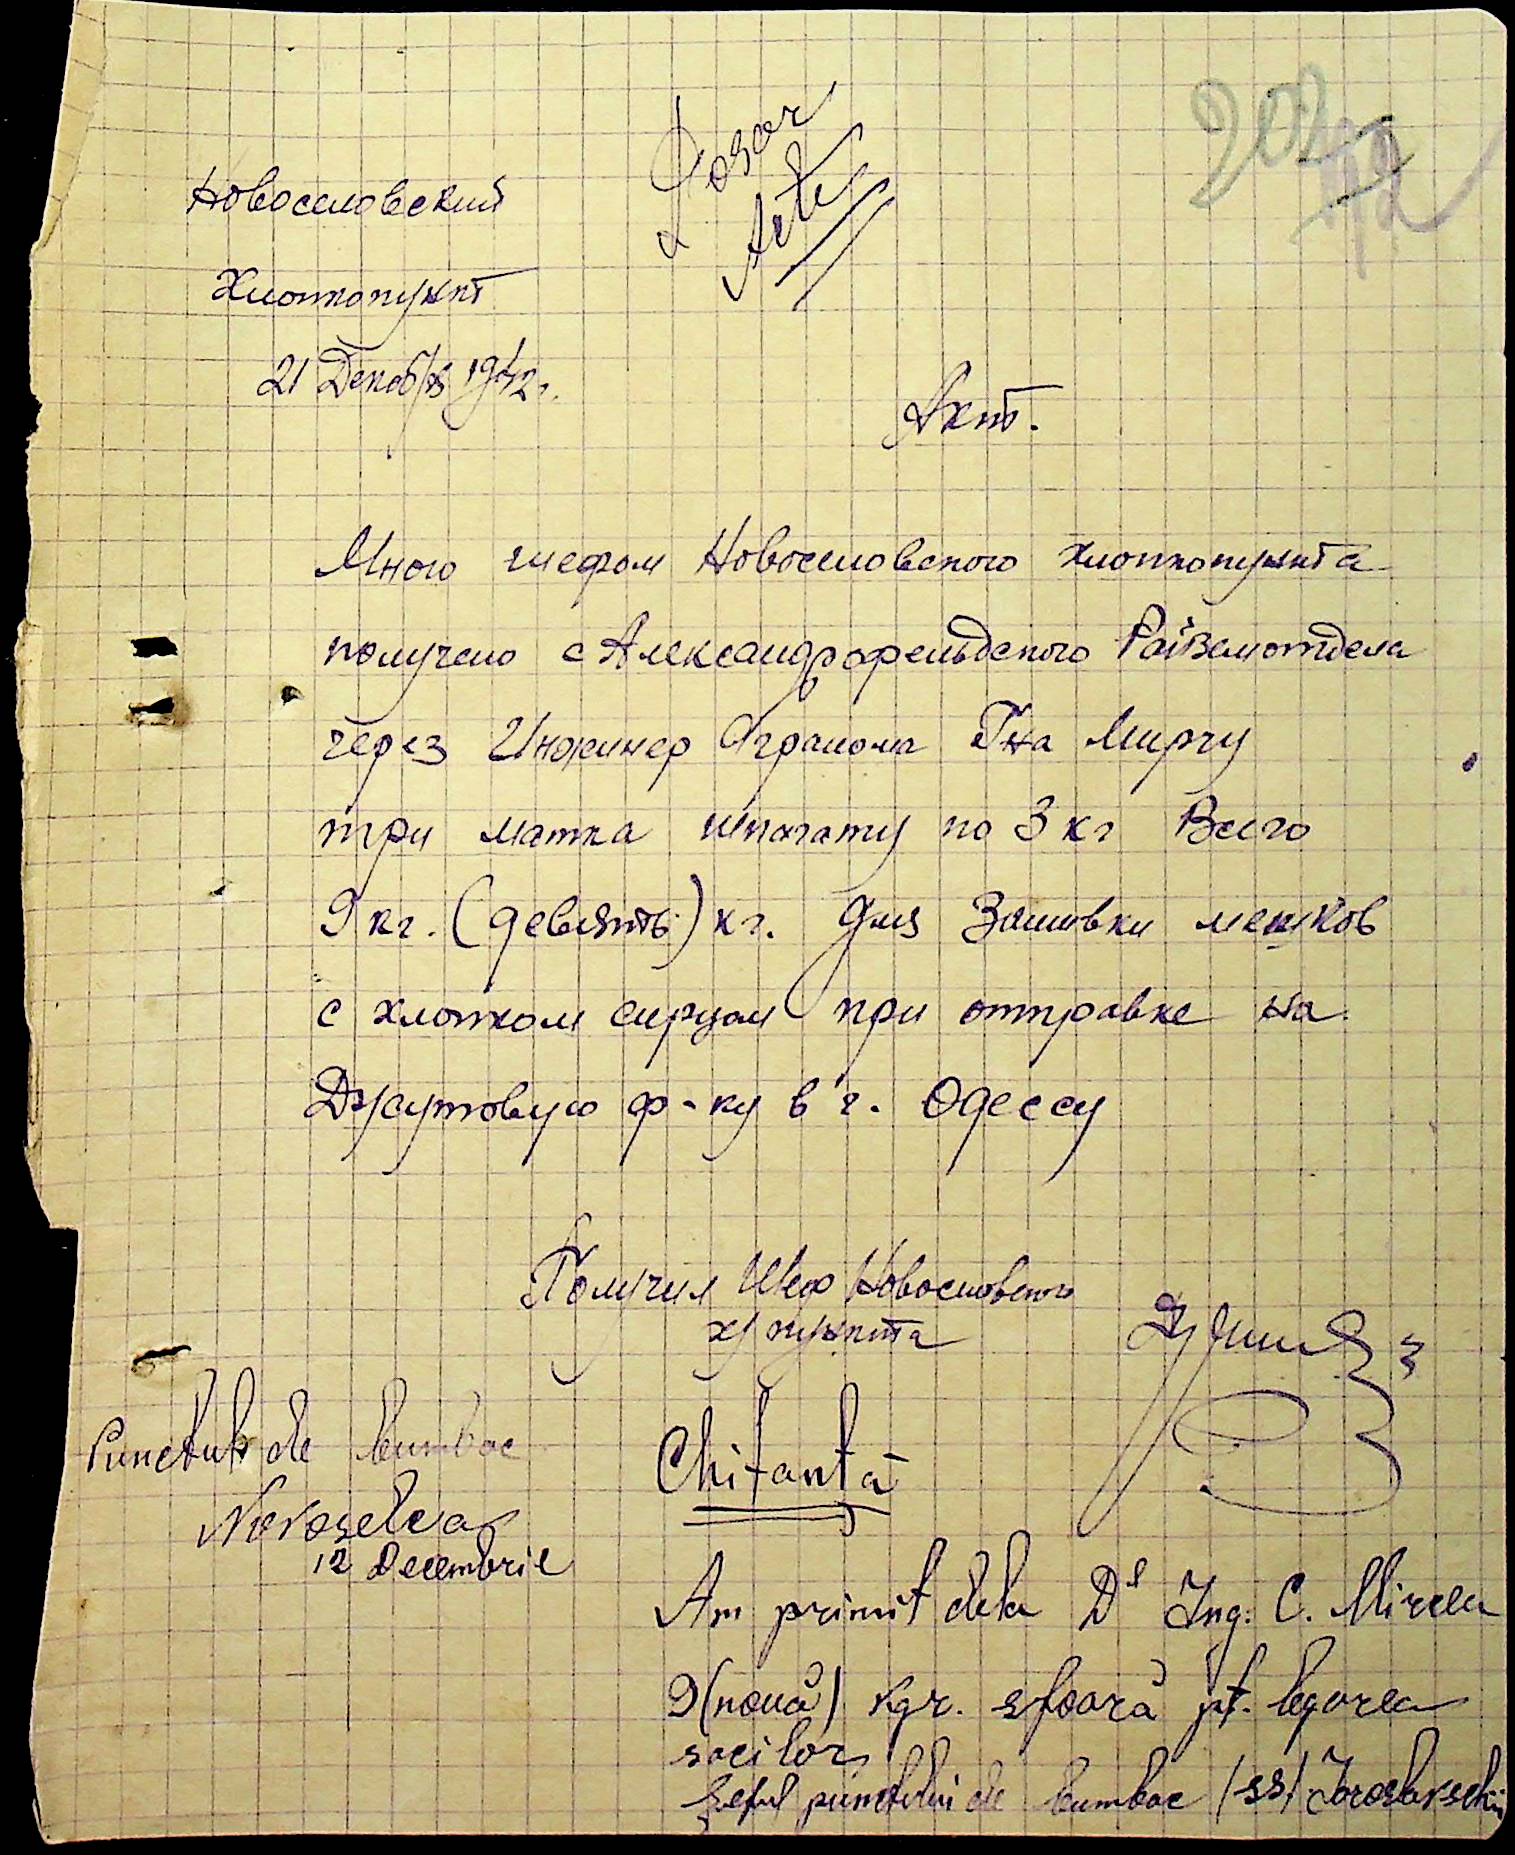 Dosar
Acte
202
Новоселовский
Хлопкопункт
21 Декабря 1942 г.
Акт.
Мною шефом Новоселовского хлопкопункта
получено с Александрфельдского Райземотдела
через Инжинер Агранома Гна Мирчу
три матка шпагату по 3 кг Всего
9 кг. (девять) кг. для Зашивки мешков
с хлопком сырцом при отправке на
Джутовую ф-ку в г. Одессу
Получил Шеф Новоселовского
х/пункта
Punctul de bumbac
Novoselca
12 Decembrie
Chitanță
Am primit dela Dl Ing. C. Mircea
9 (nouă) kgr. sfoară pt. legarea
sacilor
Șeful punctului de bumbac (ss) Iaroslavschi